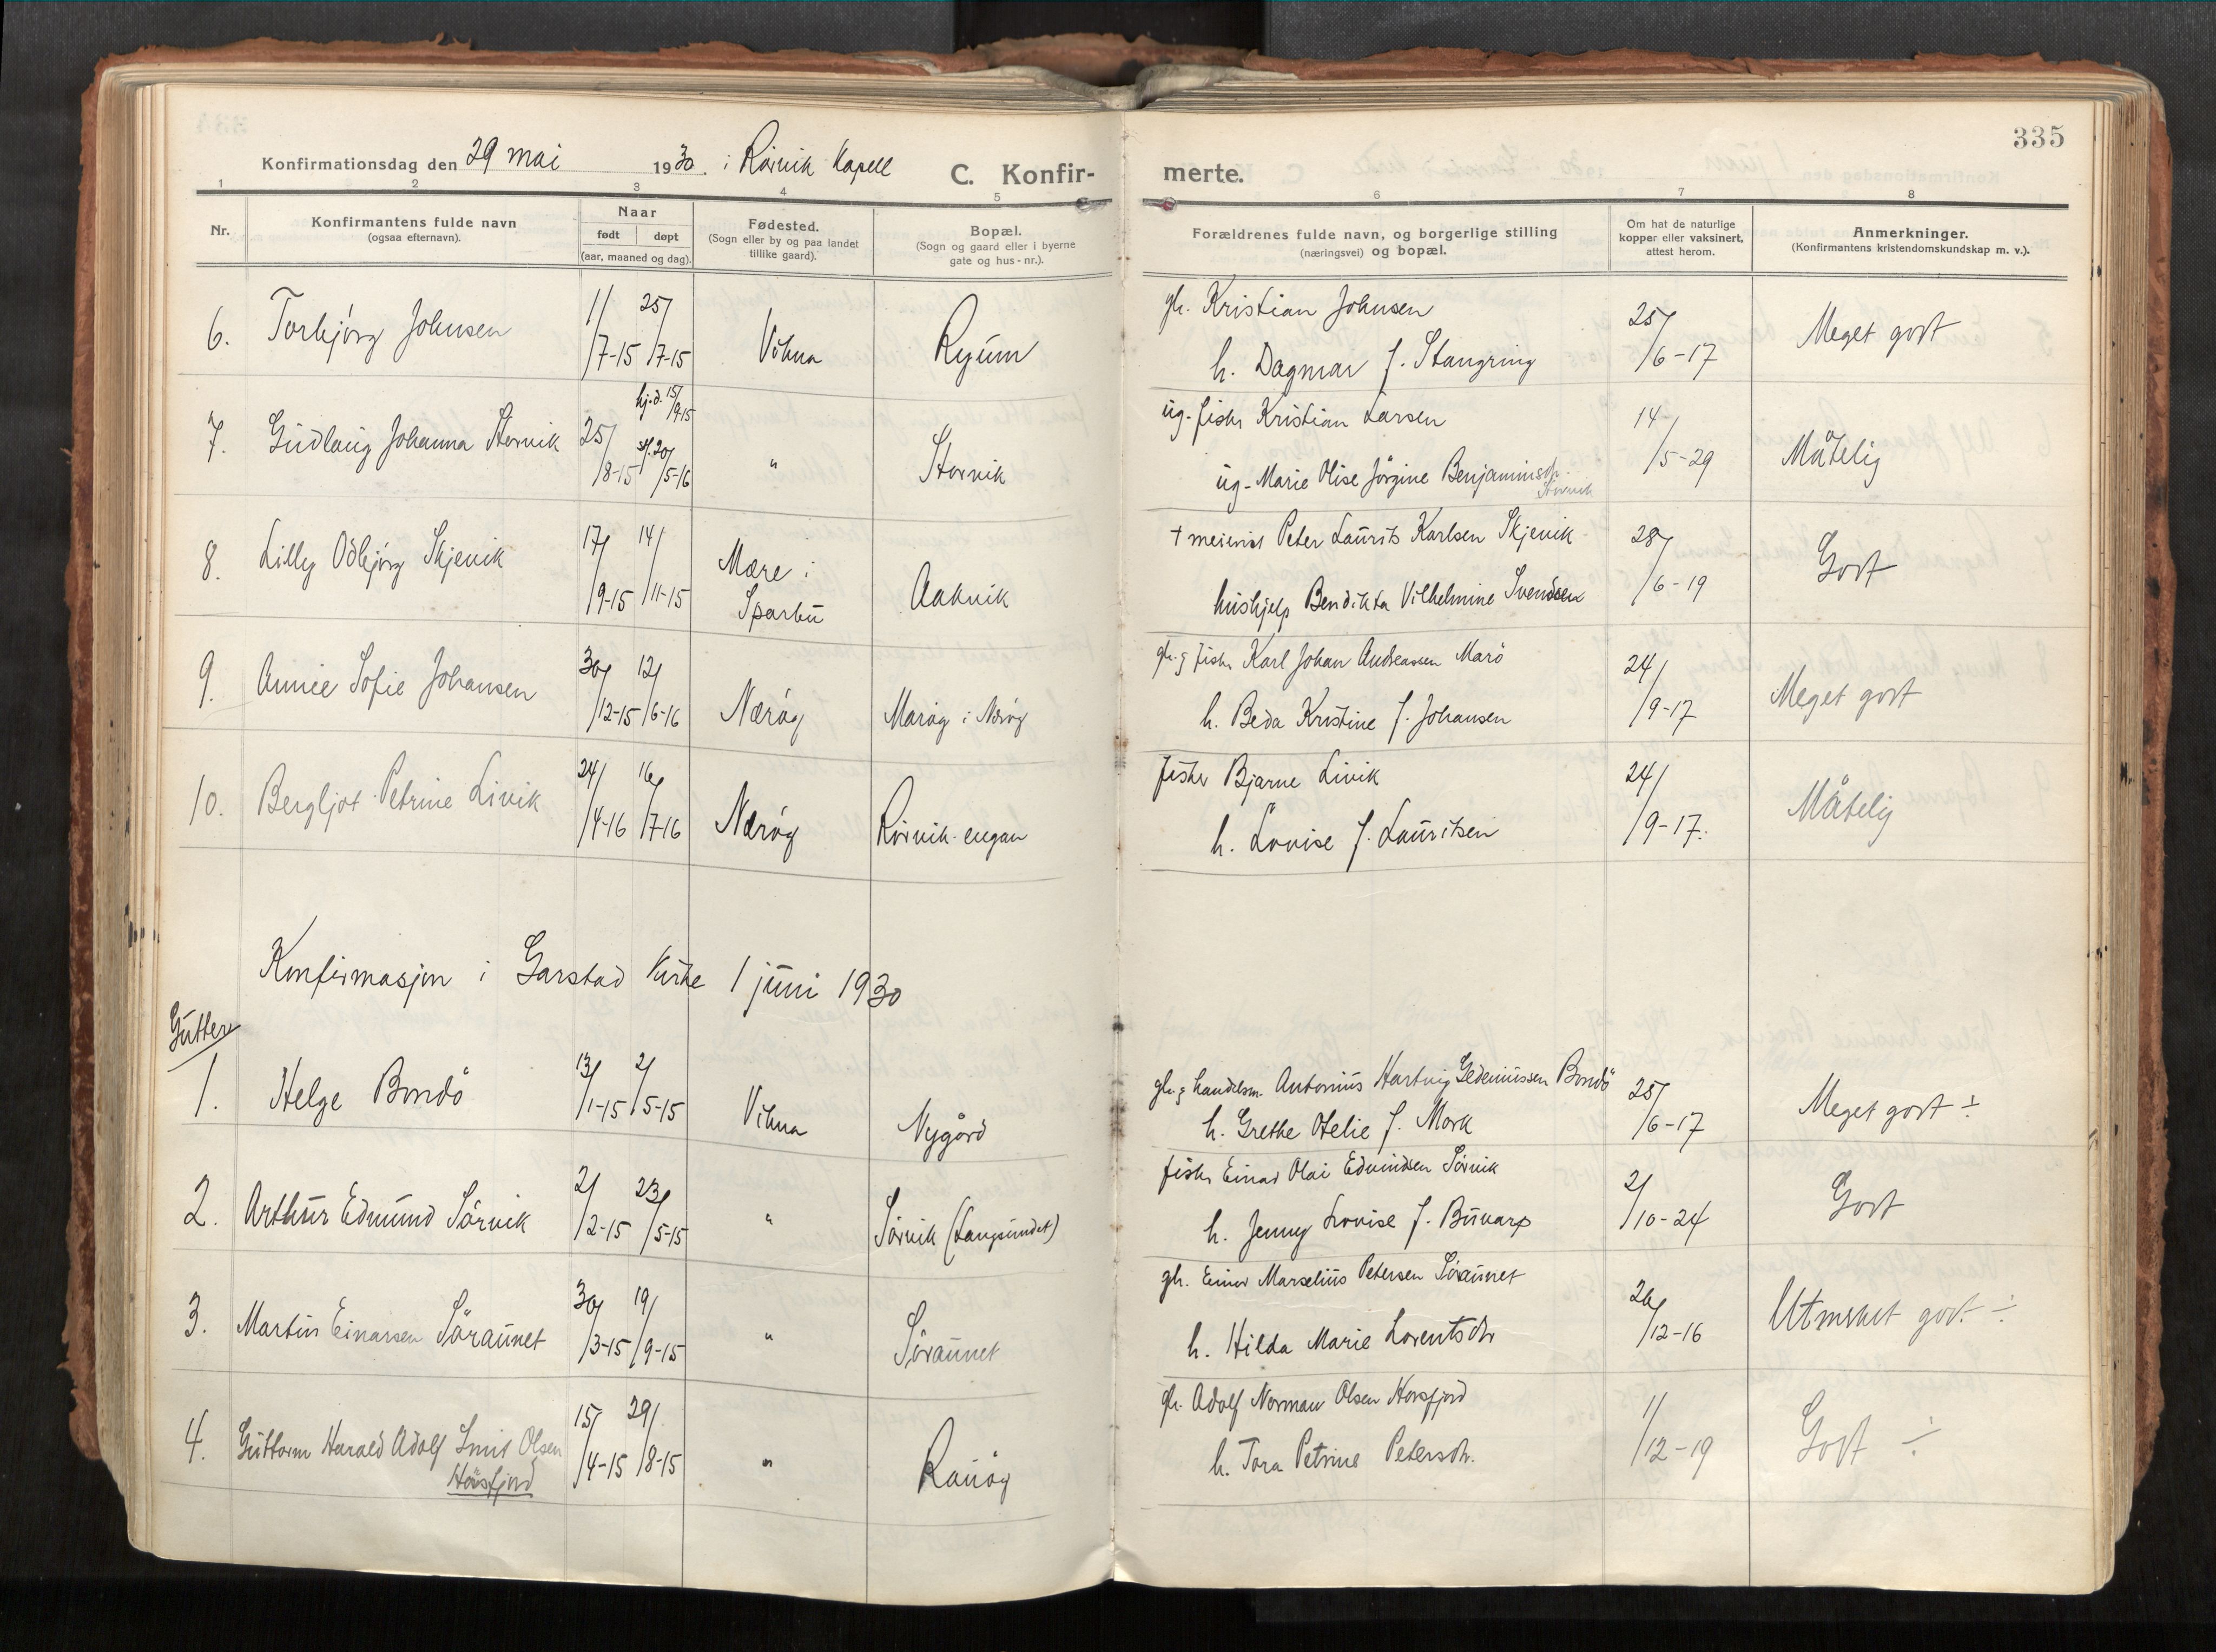 335
Konfirmationsdag den 29 mai 1930. i Rörvik Kapell
C. Konfir-merte.
1 2 3 4 5 6 7 8
Nr.
Konfirmantens fulde navn
(ogsaa efternavn).
Naar
født døpt
(aar, maaned og dag).
Fødested.
(Sogn eller by og paa landet
tillike gaard).
Bopæl.
(Sogn og gaard eller i byerne
gate og hus-nr.).
Forældrenes fulde navn, og borgerlige stilling
(næringsvei) og bopæl.
Om hat de naturlige
kopper eller vaksinert,
attest herom.
Anmerkninger.
(Konfirmantens kristendomskundskap m. v.).
6. Torbjörg Johnsen 1/7-15 25/7-15 Vikna Ryum
gb. Kristian Johnsen
h. Dagmar f. Stangring
25/6-17 Meget godt
7. Gudlaug Johanna Storvik 25/8-15 hj.d. 15/9-15 st. 20/5-16 " Storvik
ug. fisker Kristian Larsen
ug. Marie Olise Jörgine Benjaminsdtr. Storvik
14/5-29 Måtelig
8. Lilly Odbjörg Skjevik 17/9-15 14/11-15 Mære i Sparbu Aakvik
+ meierist Peter Laurits Karlsen Skjevik
hushjelp Bendikta Vilhelmine Svendsen
28/6-19 Godt
9. Annie Sofie Johansen 30/12-15 12/6-16 Næröy Maröy i Næröy
gb. og fisker Karl Johan Andreassen Marö
h. Beda Kristine f. Johansen
24/9-17 Meget godt
10. Bergljot Petrine Livik 24/4-16 16/7-16 Næröy Rörvik-engan
fisker Bjarne Livik
h. Lovise f. Lauritsen
24/9-17. Måtelig
Konfirmasjon i Garstad Kirke 1 juni 1930
Gutter
1. Helge Bondö 13/1-15 2/5-15 Vikna Nygård
gb. og handelsm. Antonius Hartvig Gedeniussen Bondö
h. Grethe Otelie f. Mork
25/6-17 Meget godt ÷
2. Arthur Edmund Sörvik 2/2-15 23/5-15 " Sörvik (Langsundet)
fisker Einar Olai Edmundsen Sörvik
h. Jenny Lovise f. Buvarp
2/10-24 Godt
3. Martin Einarsen Söraunet 30/3-15 19/9-15 " Söraunet
gb. Einar Marselius Petersen Söraunet
h. Hilda Marie Lorentsdtr
26/12-16 Utmerket godt ÷
4. Guttorm Harald Adolf Smit Olsen 15/4-15 29/8-15 " Rauöy
Horsfjord
gb. Adolf Norman Olsen Horsfjord
h. Tora Petrine Petersdtr.
1/12-19 Godt ÷